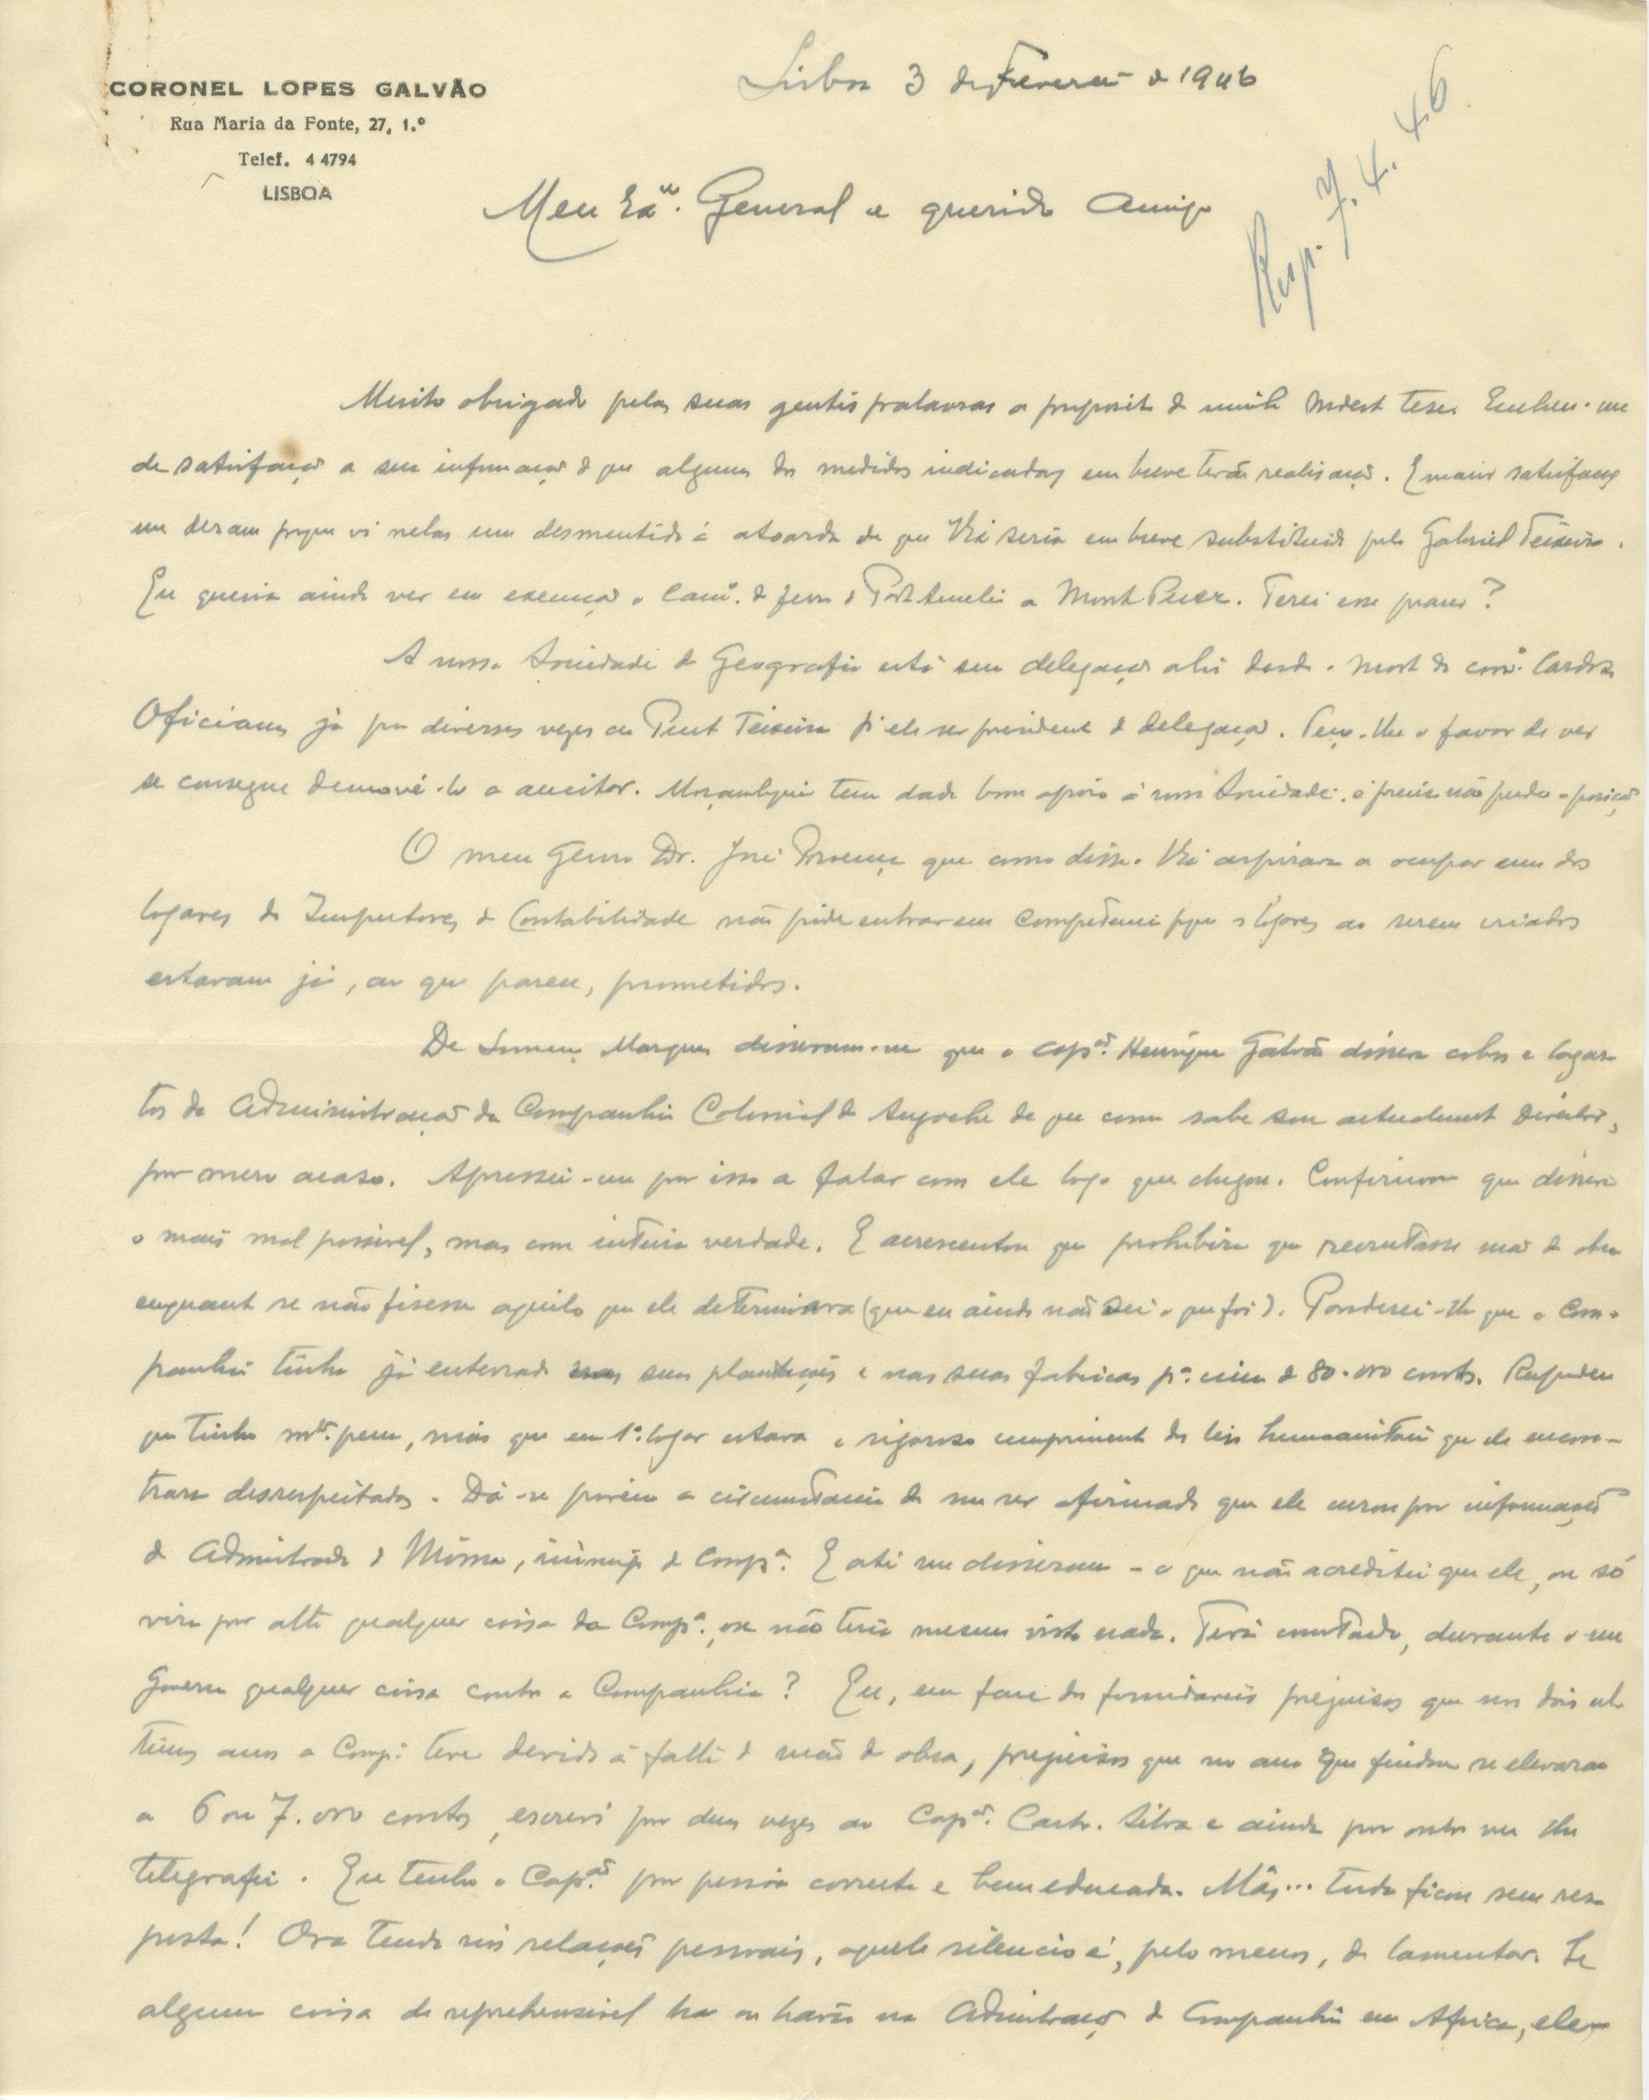 CORONEL LOPES GALVÃO
Rua Maria da Fonte, 27, 1.º
Telef. 4 4794
LISBOA
Lisboa 3 de Fevereiro de 1946
Resp. 7.4.46
Meu Exº. General e querido Amigo
Muito obrigado pelas suas gentis palavras a proposito da minha modesta tese. Encheu-me
de satisfação a sua informação de que algumas das medidas indicadas em breve terão realisação. E maior satisfação
me deram porque vi nelas um desmentido á atoarda de que V. seria em breve substituido pelo Gabriel Teixeira.
Eu queria ainda ver em execução o Camº. de ferro de Porto Amelia a Mont Puez. Terei esse prazer?
A nossa Sociedade de Geografia está sem delegação ahi desde a morte do comº. Cardoso
Oficiamos já por diversas vezes ao Pinto Teixeira pª ele ser presidente da delegação. Peço-lhe o favor de ver
se consegue demovê-lo a aceitar. Moçambique tem dado bom apoio á nossa Sociedade: é preciso não perder a posição
O meu Genro Dr. José Proença que como disse a V. aspirava a ocupar um dos
logares de Inspectores de Contabilidade não pôde entrar em competencia pque os logares ao serem criados
estavam já, ao que parece, prometidos.
De Lourenço Marques disseram-me que o capªº. Henrique Galvão dissera cobras e lagar-
tos da Administração da Companhia Colonial de Angoche de que como sabe sou actualmente Director,
por mero acaso. Apressei-me por isso a falar com ele logo que chegou. Confirmou que dissera
o mais mal possivel, mas com inteira verdade. E acrescentou que prohibira que recrutasse mão de obra
enquanto se não fizesse aquilo que ele determinara (que eu ainda não sei o que foi). Ponderei-lhe que a Com-
panhia tinha já enterrado nas suas plantações e nas suas fabricas pª. cima de 80.000 contos. Respondeu
que tinha mtª. pena, mas que em 1º. logar estava o rigoroso cumprimento das leis humanitarias que ele encon-
trara desrespeitadas. Dá-se porém a circumstancia de me ser afirmado que ele curou por informações
do Administrador de Môma, inimigo da Compª. E até me disseram - o que não acreditei que ele, ou só
vira por alto qualquer coisa da Compª., ou não teria mesmo visto nada. Terá constado, durante o seu
Governo qualquer coisa contra a Companhia? Eu, em face dos formidaveis prejuisos que nos dois ul-
timos anos a Compª. teve devido á falta de mão de obra, prejuisos que no ano que findou se elevaram
a 6 ou 7.000 contos, escrevi por duas vezes ao Capªº. Castro Silva e ainda por outra vez lhe
telegrafei. Eu tenho o Capªº. por pessoa correcta e bem educada. Mâs... tudo ficou sem res-
posta! Ora tendo nós relações pessoais, aquele silencio é, pelo menos, de lamentar. Se
alguma coisa de reprehensivel ha ou havia na Administração da Companhia em Africa, ele